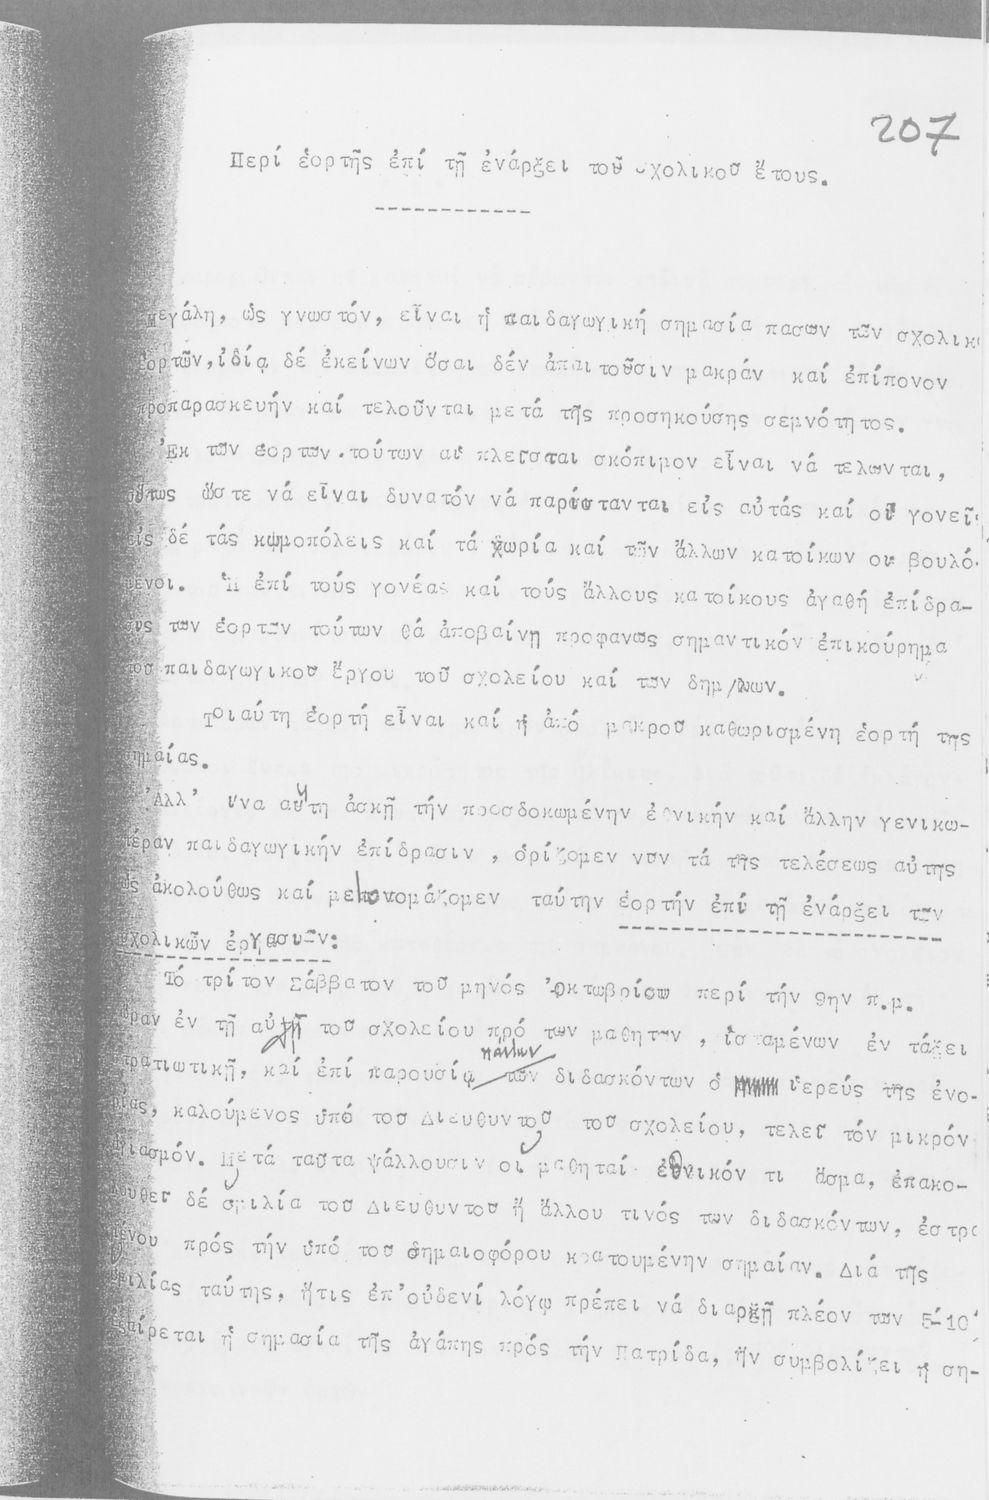 207
Περί ἑορτῆς ἐπί τῇ ἐνάρξει τοῦ σχολικοῦ ἔτους.
Μεγάλη, ὡς γνωστόν, εἶναι ἡ παιδαγωγική σημασία πασῶν τῶν σχολικ
ἑορτῶν, ἰδίᾳ δέ ἐκείνων ὅσαι δέν ἀπαιτοῦσιν μακράν καί ἐπίπονον
προπαρασκευήν καί τελοῦνται μετά τῆς προσηκούσης σεμνότητος.
Ἐκ τῶν ἑορτῶν τούτων αἱ πλεῖσται σκόπιμον εἶναι νά τελῶνται,
οὕτως ὥστε νά εἶναι δυνατόν νά παρίστανται εἰς αὐτάς καί οἱ γονεῖς
εἰς δέ τάς κωμοπόλεις καί τά χωρία καί τῶν ἄλλων κατοίκων οἱ βουλό-
μενοι. Ἡ ἐπί τούς γονέας καί τούς ἄλλους κατοίκους ἀγαθή ἐπίδρα-
σις τῶν ἑορτῶν τούτων θά ἀποβαίνῃ προφανῶς σημαντικόν ἐπικούρημα
τοῦ παιδαγωγικοῦ ἔργου τοῦ σχολείου καί τῶν δημ/λων.
Τοιαύτη ἑορτή εἶναι καί ἡ ἀπό μακροῦ καθωρισμένη ἑορτή τῆς
σημαίας.
Ἀλλ' ἵνα αὕτη ἀσκῇ τήν προσδοκωμένην ἐθνικήν καί ἄλλην γενικω-
τέραν παιδαγωγικήν ἐπίδρασιν, ὁρίζομεν νῦν τά τῆς τελέσεως αὐτῆς
ὡς ἀκολούθως καί μετονομάζομεν ταύτην ἑορτήν ἐπί τῇ ἐνάρξει τῶν
σχολικῶν ἐργασιῶν:
Τό τρίτον Σάββατον τοῦ μηνός Ὀκτωβρίου περί τήν 9ην π.μ.
ὥραν ἐν τῇ αὐλῇ τοῦ σχολείου πρό τῶν μαθητῶν, ἱσταμένων ἐν τάξει
στρατιωτικῇ, καί ἐπί παρουσίᾳ πάντων τῶν διδασκόντων ὁ ἱερεύς τῆς ἐνο-
ρίας, καλούμενος ὑπό τοῦ Διευθυντοῦ τοῦ σχολείου, τελεῖ τόν μικρόν
ἁγιασμόν. Μετά ταῦτα ψάλλουσιν οἱ μαθηταί ἐθνικόν τι ᾆσμα, ἐπακο-
λουθεῖ δέ ὁμιλία τοῦ Διευθυντοῦ ἤ ἄλλου τινός τῶν διδασκόντων, ἐστρα
μένου πρός τήν ὑπό τοῦ σημαιοφόρου κρατουμένην σημαίαν. Διά τῆς
ὁμιλίας ταύτης, ἥτις ἐπ' οὐδενί λόγῳ πρέπει νά διαρκῇ πλέον τῶν 5-10'
ἐξαίρεται ἡ σημασία τῆς ἀγάπης πρός τήν Πατρίδα, ἥν συμβολίζει ἡ ση-